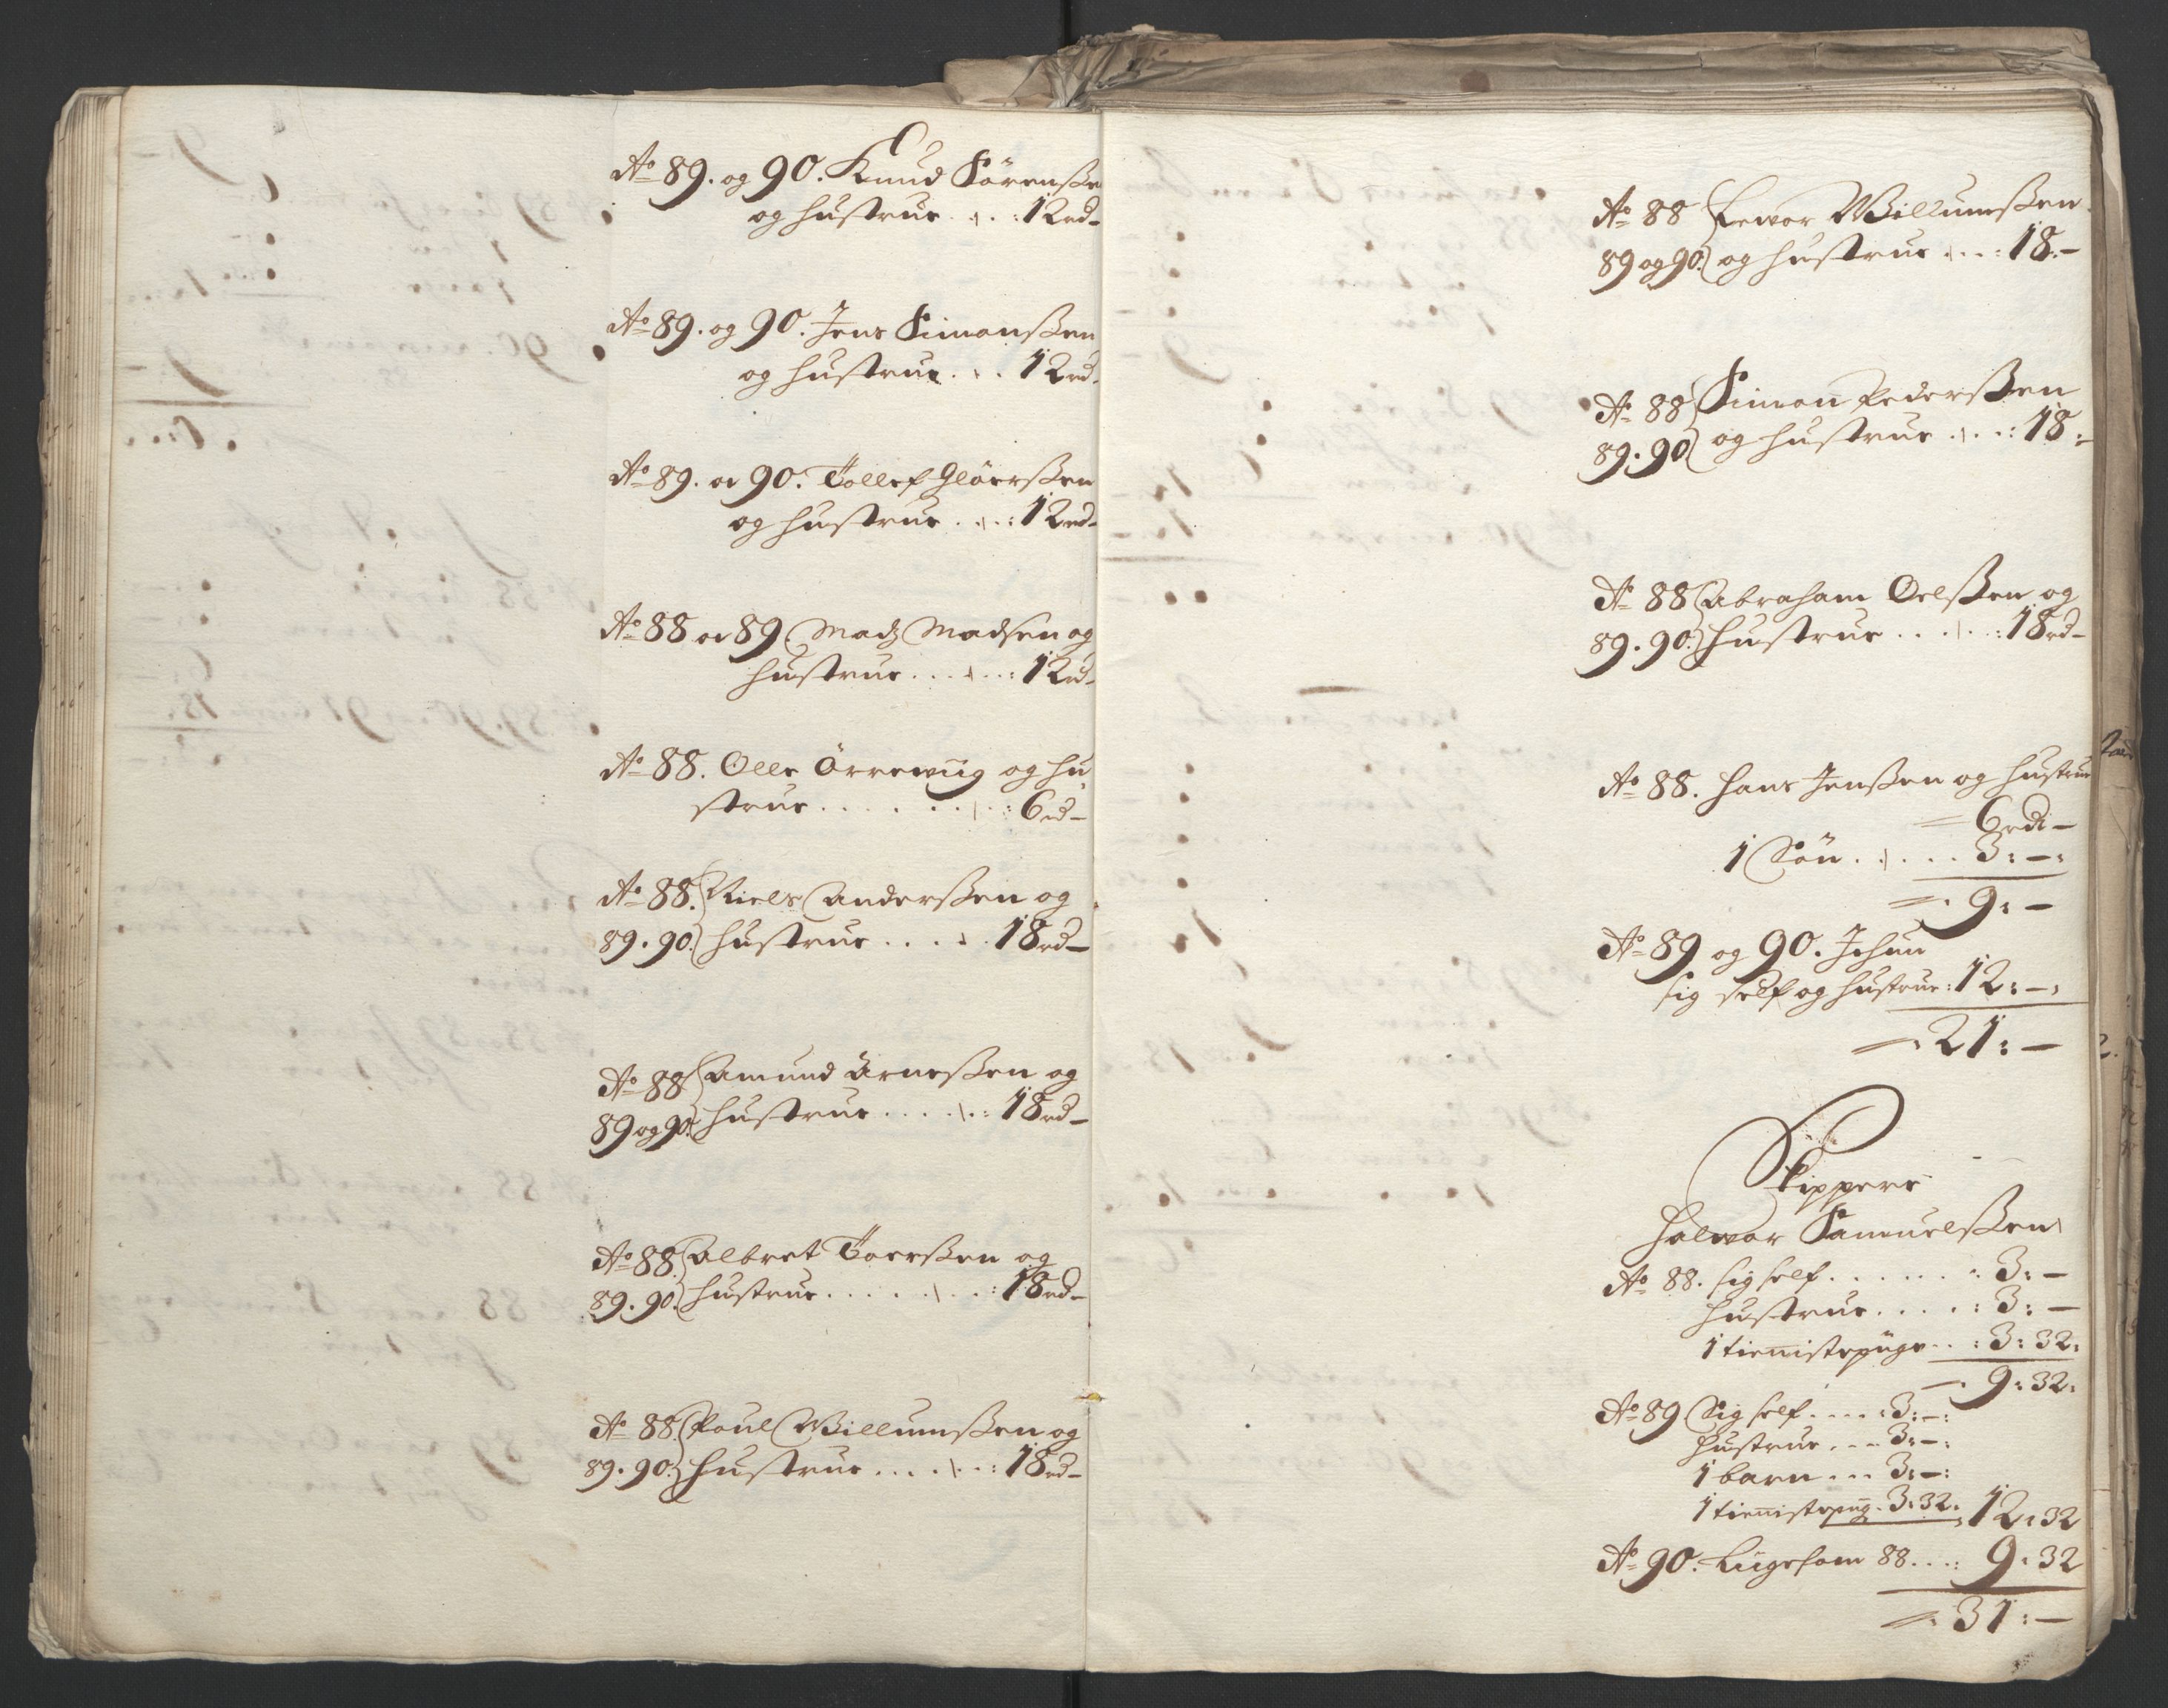 Ao 89. og 90. Knud Sörenßen
og hustrue . . . : 12 rd -
Ao 89. og 90. Jens Simonßen
og hustrue . . . 12 rd.
Ao 89. oc 90. Tollef Glöerßen
og hustrue . . . : 12 rd -
Ao 88 oc 89 Madz Madsen og
hustrue . . . . . : 12 rd -
Ao 88. Olle Örrewiig og hu
strue . . . . . . . : 6 rd -
Ao 88. Niels Anderßen og
89. 90. hustrue . . . . . 18 rd -
Ao 88 Amund Arneßen og
89 og 90. hustrue . . . . . : 18 rd -
Ao 88. Albret Toerßen og
89. 90. hustrue . . . . . . . : 18 rd -
Ao 88. Poul Willumßen og
89. 90. hustrue . . . . . . : 18 rd -
Ao 88 Willumßen
89 og 90. og hustrue . . . : 18. -
Ao 88 Simon Pederßen
89. 90 og hustrue . . . : 18 : -
Ao 88 Abraham Oelßen og
89. 90. hustrue . . . . . : 18 rd -
Ao 88. Hans Jenßen og hustrue
= 6 rd -
1 Sön . . . . . 3 : - :
= . 9 : -
Ao 89 og 90. Ichun
sig self og hustrue : 12 : - :
= . 21 : -
Skippere
Halwor Samuelßen
Ao 88. sig self . . . . . . : 3 : -
hustrue . . . . : 3 : -
1 tienistepige . . : 3 : 32 :
- . 9 : 32 :
Ao 89 Sig self . . . . : 3 : - :
hustrue . . . 3 : - :
1 barn . . . 3 : - :
1 tienistepig . 3 : 32 : 12 : 32
Ao 90. Liigesom 88 . . . : 9 : 32
= : 31 : -